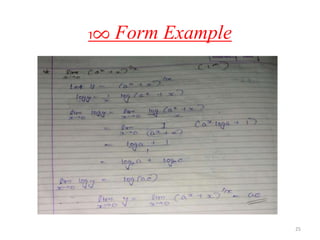 1∞ Form Example
lim x→0 (aˣ + x)^1/x (1^∞)
Let y = (aˣ + x)^1/x
logy = 1/x log(aˣ + x)
lim x→0 logy = lim x→0 log(aˣ + x) / x
= lim x→0 1/(aˣ + x) (aˣ loga + 1)
= loga + 1
= logₑa + logₑe
lim x→0 logy = log(ae)
lim x→0 y = lim x→0 (aˣ + x)^1/x = ae
25